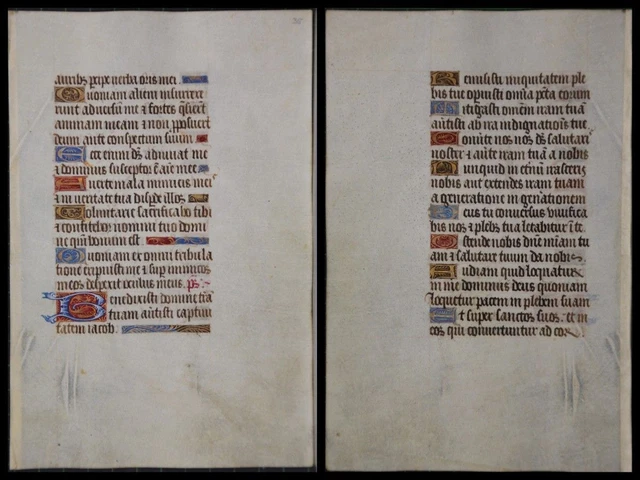 auribus percipe verba oris mei
Quoniam alieni insurrexe
runt adversum me et fortes quesierunt
animam meam et non proposuerunt
deum ante conspectum suum
Ecce enim deus adiuvat me
et dominus susceptor est anime mee
Averte mala inimicis meis
et in veritate tua disperde illos
Voluntarie sacrificabo tibi
et confitebor nomini tuo domi
ne quoniam bonum est
Quoniam ex omni tribula
tione eripuisti me et super inimicos
meos despexit oculus meus ps
Benedixisti domine terram
tuam avertisti captivi
tatem iacob
Remisisti iniquitatem ple
bis tue operuisti omnia peccata eorum
Mitigasti omnem iram tuam
avertisti ab ira indignationis tue
Converte nos deus salutaris
noster et averte iram tuam a nobis
Nunquid in eternum irasceris
nobis aut extendes iram tuam
a generatione in generationem
Deus tu conversus vivifica
bis nos et plebs tua letabitur in te
Ostende nobis domine misericordiam tu
am et salutare tuum da nobis
Audiam quid loquatur
in me dominus deus quoniam
loquetur pacem in plebem suam
Et super sanctos suos et in
eos qui convertuntur ad cor